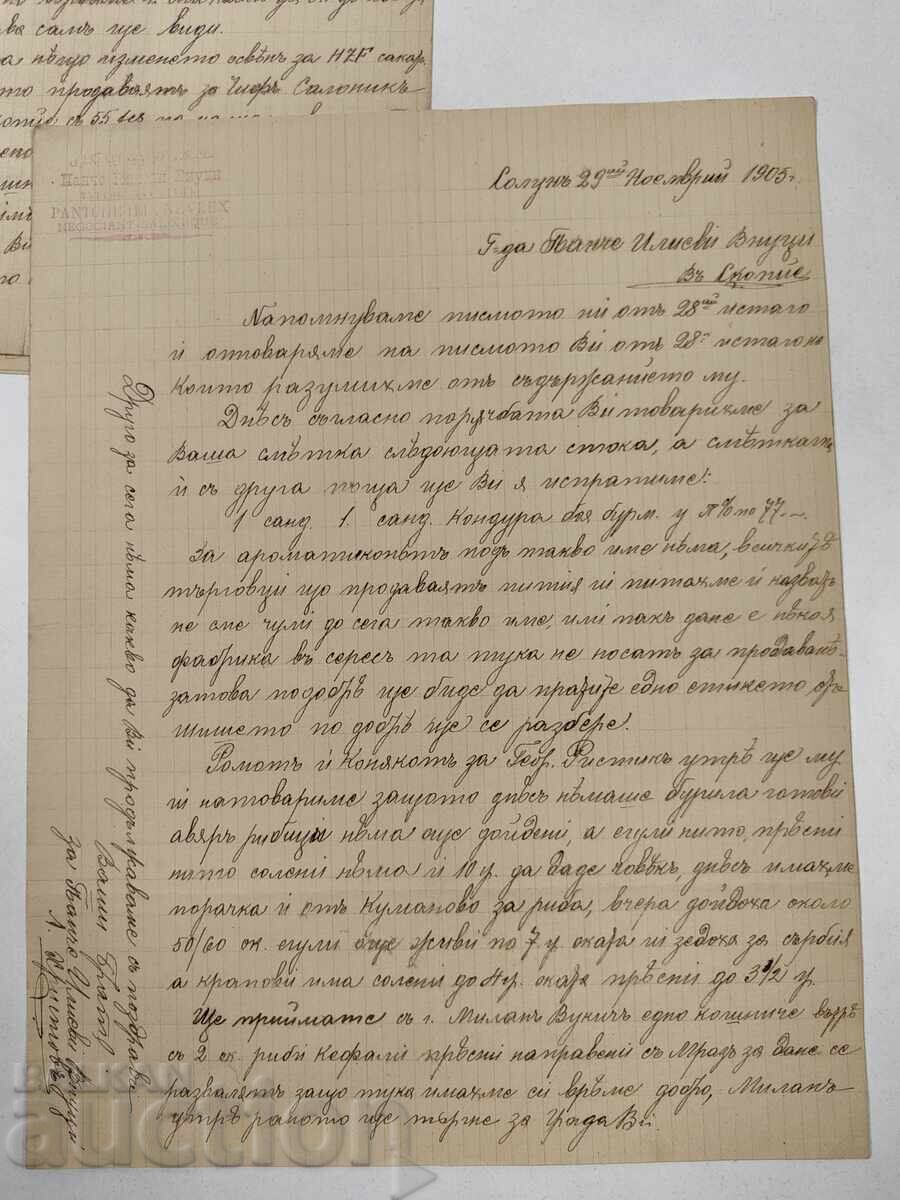 ва самъ ще види.
нѣщо изменето освѣнъ за HZF сакар
то продаватъ за Чифр. Салоникъ
с 55
PANTCHE
NEGOCIANT
Солунъ 29ий Ноемврий 1905 г.
Г-да Панче Илиеви Внуци
Въ Скопие
Напомнуваме писмото ни отъ 28ий истаго
и отговаряме на писмото Ви отъ 28й истаго на
които разумихме отъ съдържанието му.
Днѣсъ съгласно порячбата Ви товарихме за
Ваша смѣтка слѣдоющата стока, а смѣтката
й съ друга поща ще Ви я испратиме:
1 санд. 1. санд. Кондура бур. у по 77.—
За ароматикотъ подъ такво име нѣма, всички
търговци що продаватъ пития ги питахме и казватъ
не сме чули до сега такво име, или пакъ дане е нѣкоя
фабрика въ Сересъ та тука не носатъ за продаванѣ
затова подобрѣ ще биде да пратите едно етикето, от
шишето по добрѣ ще се разбере.
Ромотъ и Конякотъ за Гебр. Ристикъ утрѣ ще му
ги натовариме защото днѣсъ нѣмаше бурила готови
авяръ рибици нѣма още дойдени, а егули нито прѣсни
нито солени нѣма и 10 у. да даде човѣкъ, днѣсъ имахме
порачка и отъ Куманово за риба, вчера дойдоха около
50/60 ок. егули още живи по 7 у. оката ги зедоха за сърбия
а крапови има солени до 4 у. оката прѣсни до 3 1/2 у.
Ще приймате съ г. Миланъ Вукичъ едно кошниче вѫтрѣ
съ 2 ок. риби Кефали прѣсни направени съ мразъ за дане се
развалятъ защо тука имахме си врѣме добро, Миланъ
утрѣ раното ще търгне за града Ви.
Друго за сега нѣма какво да Ви продължаваме съ поздрави
Ваши Братя
за Панчо Илиеви Внуци